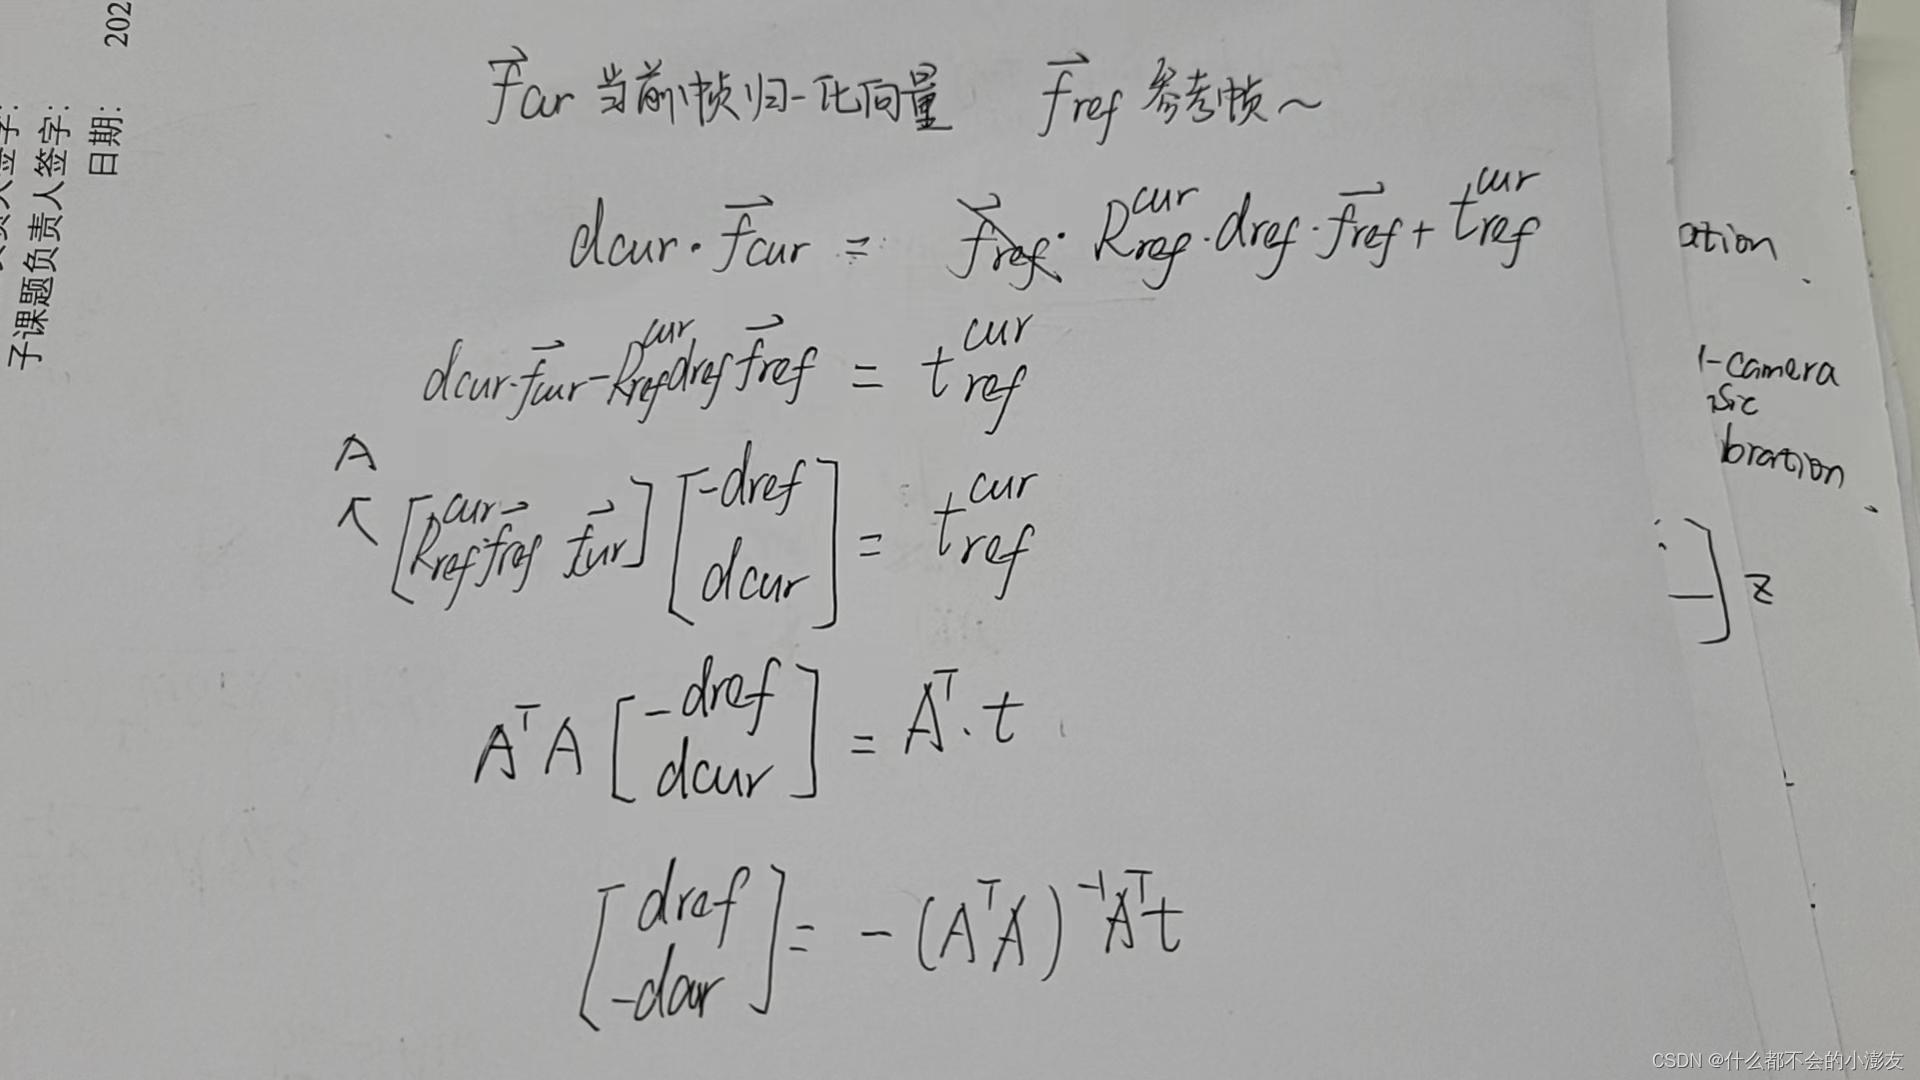 202
签字:
子课题负责人签字:
日期:
f⃗cur 当前帧归一化向量 f⃗ref 参考帧~
dcur · f⃗cur = R_ref^cur · dref · f⃗ref + t_ref^cur
dcur · f⃗cur - R_ref^cur dref f⃗ref = t_ref^cur
A
↖ [R_ref^cur · f⃗ref f⃗cur] [-dref dcur] = t_ref^cur
A^T A [-dref dcur] = A^T · t
[dref -dcur] = -(A^T A)^-1 A^T t
ation
1-camera
bration
] z
CSDN @什么都不会的小澎友